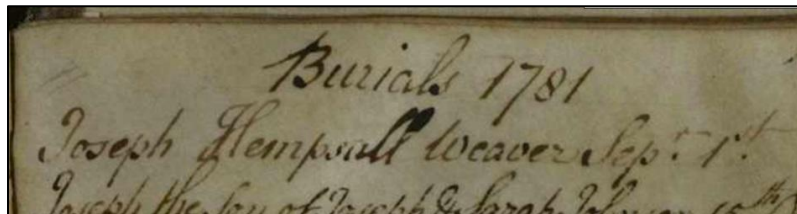 Burials 1781
Joseph Hempsall Weaver Sepr. 1st
Joseph the Son of Joseph & Sarah Johnson 10th